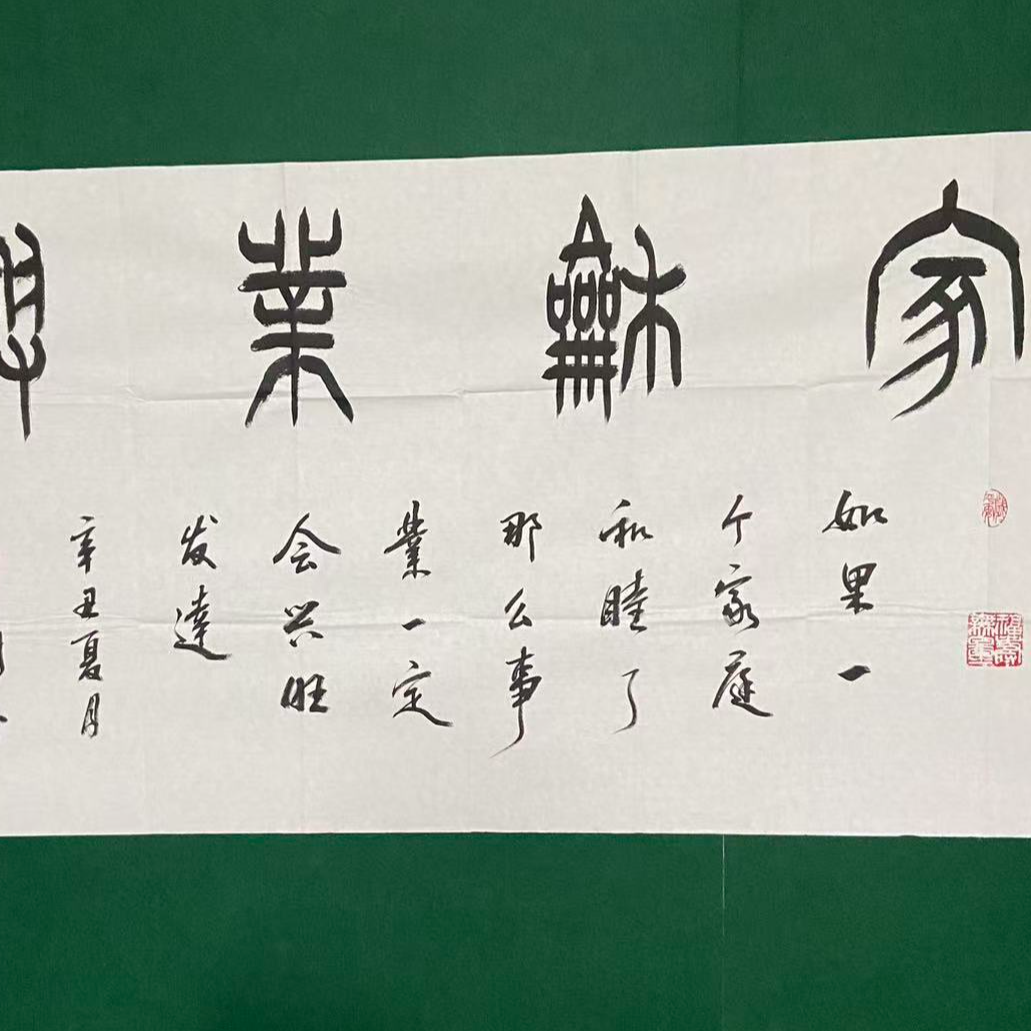 家龢業
如果一
个家庭
和睦了
那么事
業一定
会兴旺
发達
辛丑夏月